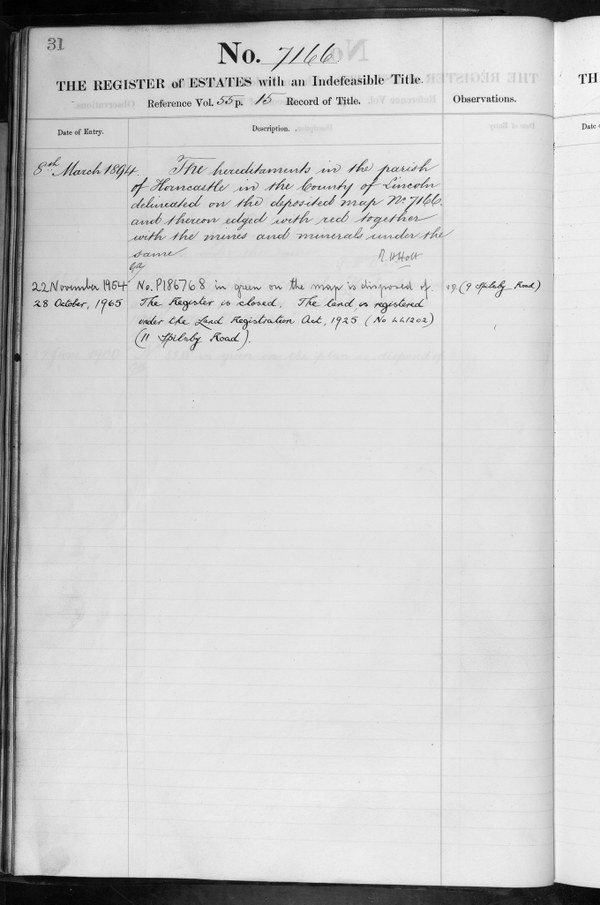 31
No. 7166
THE REGISTER of ESTATES with an Indefeasible Title.
Reference Vol. 55 p. 15 Record of Title.
Observations.
Date of Entry.
Description.
8th March 1894.
The hereditaments in the parish
of Horncastle in the County of Lincoln
delineated on the deposited map No. 7166
and thereon edged with red together
with the mines and minerals under the
same
R. H. Holt
22 November 1954
No. P186768 in green on the map is disposed of.
(9 Spilsby Road)
28 October, 1965
The Register is closed. The land is registered
under the Land Registration Act, 1925 (No LL1202)
(11 Spilsby Road).
TH
Date o